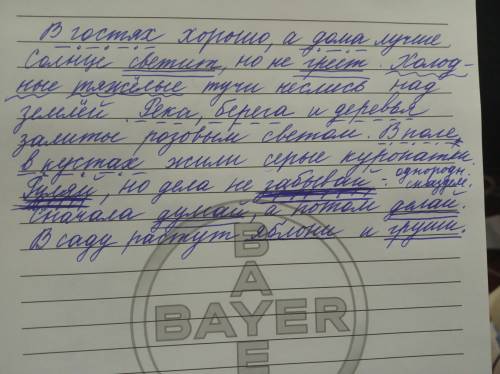 В гостях хорошо, а дома лучше
Солнце светит, но не греет. Холод-
ные тяжёлые тучи неслись над
землёй. Река, берега и деревья
залиты розовым светом. В поле,
в кустах жили серые куропатки.
Гуляй, но дела не забывай - однородн. сказуем.
Сначала думай, а потом делай.
В саду растут яблони и груши.
BAYER
BAYE